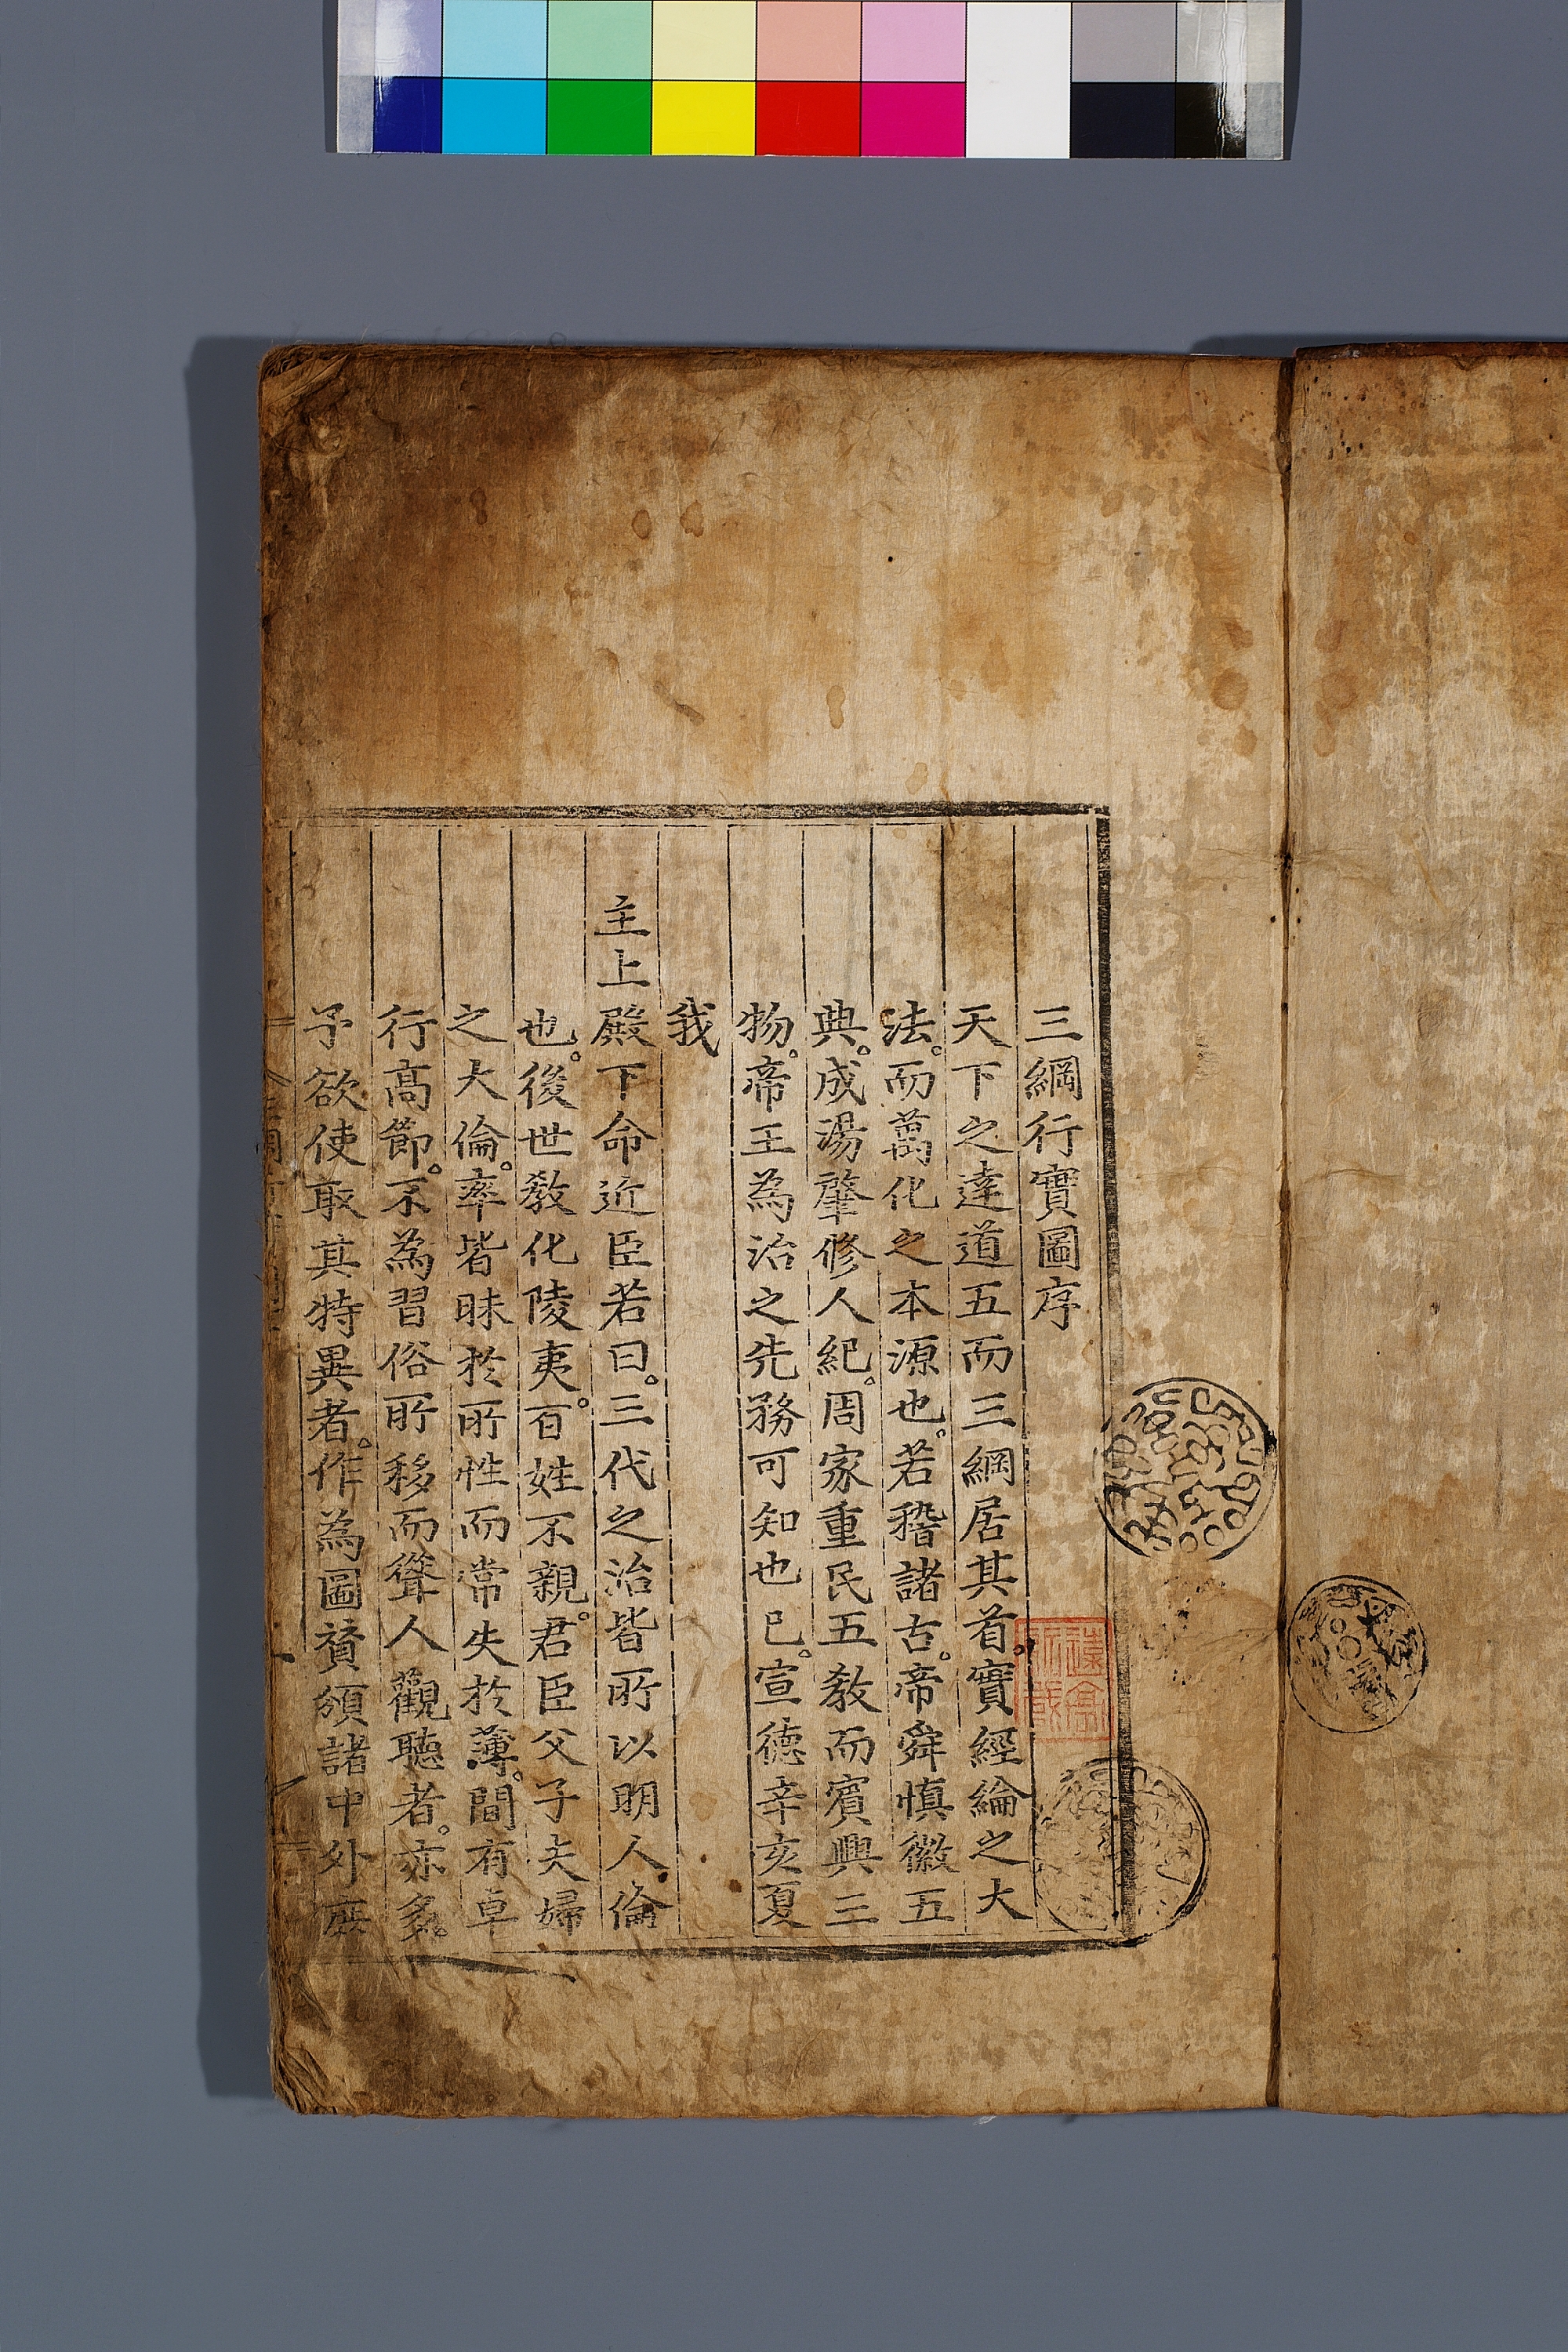 三綱行實圖序
天下之達道五而三綱居其首。實經綸之大
法。而萬化之本源也。若稽諸古。帝舜慎徽五
典。成湯肇修人紀。周家重民五教而賓興三
物。帝王為治之先務可知也已。宣德辛亥夏
我
主上殿下命近臣若曰。三代之治皆所以明人倫
也。後世教化陵夷。百姓不親。君臣父子夫婦
之大倫。率皆昧於所性而常失於薄。間有卓
行高節。不為習俗所移而聳人觀聽者。亦多。
予欲使取其特異者。作為圖贊頒諸中外庶